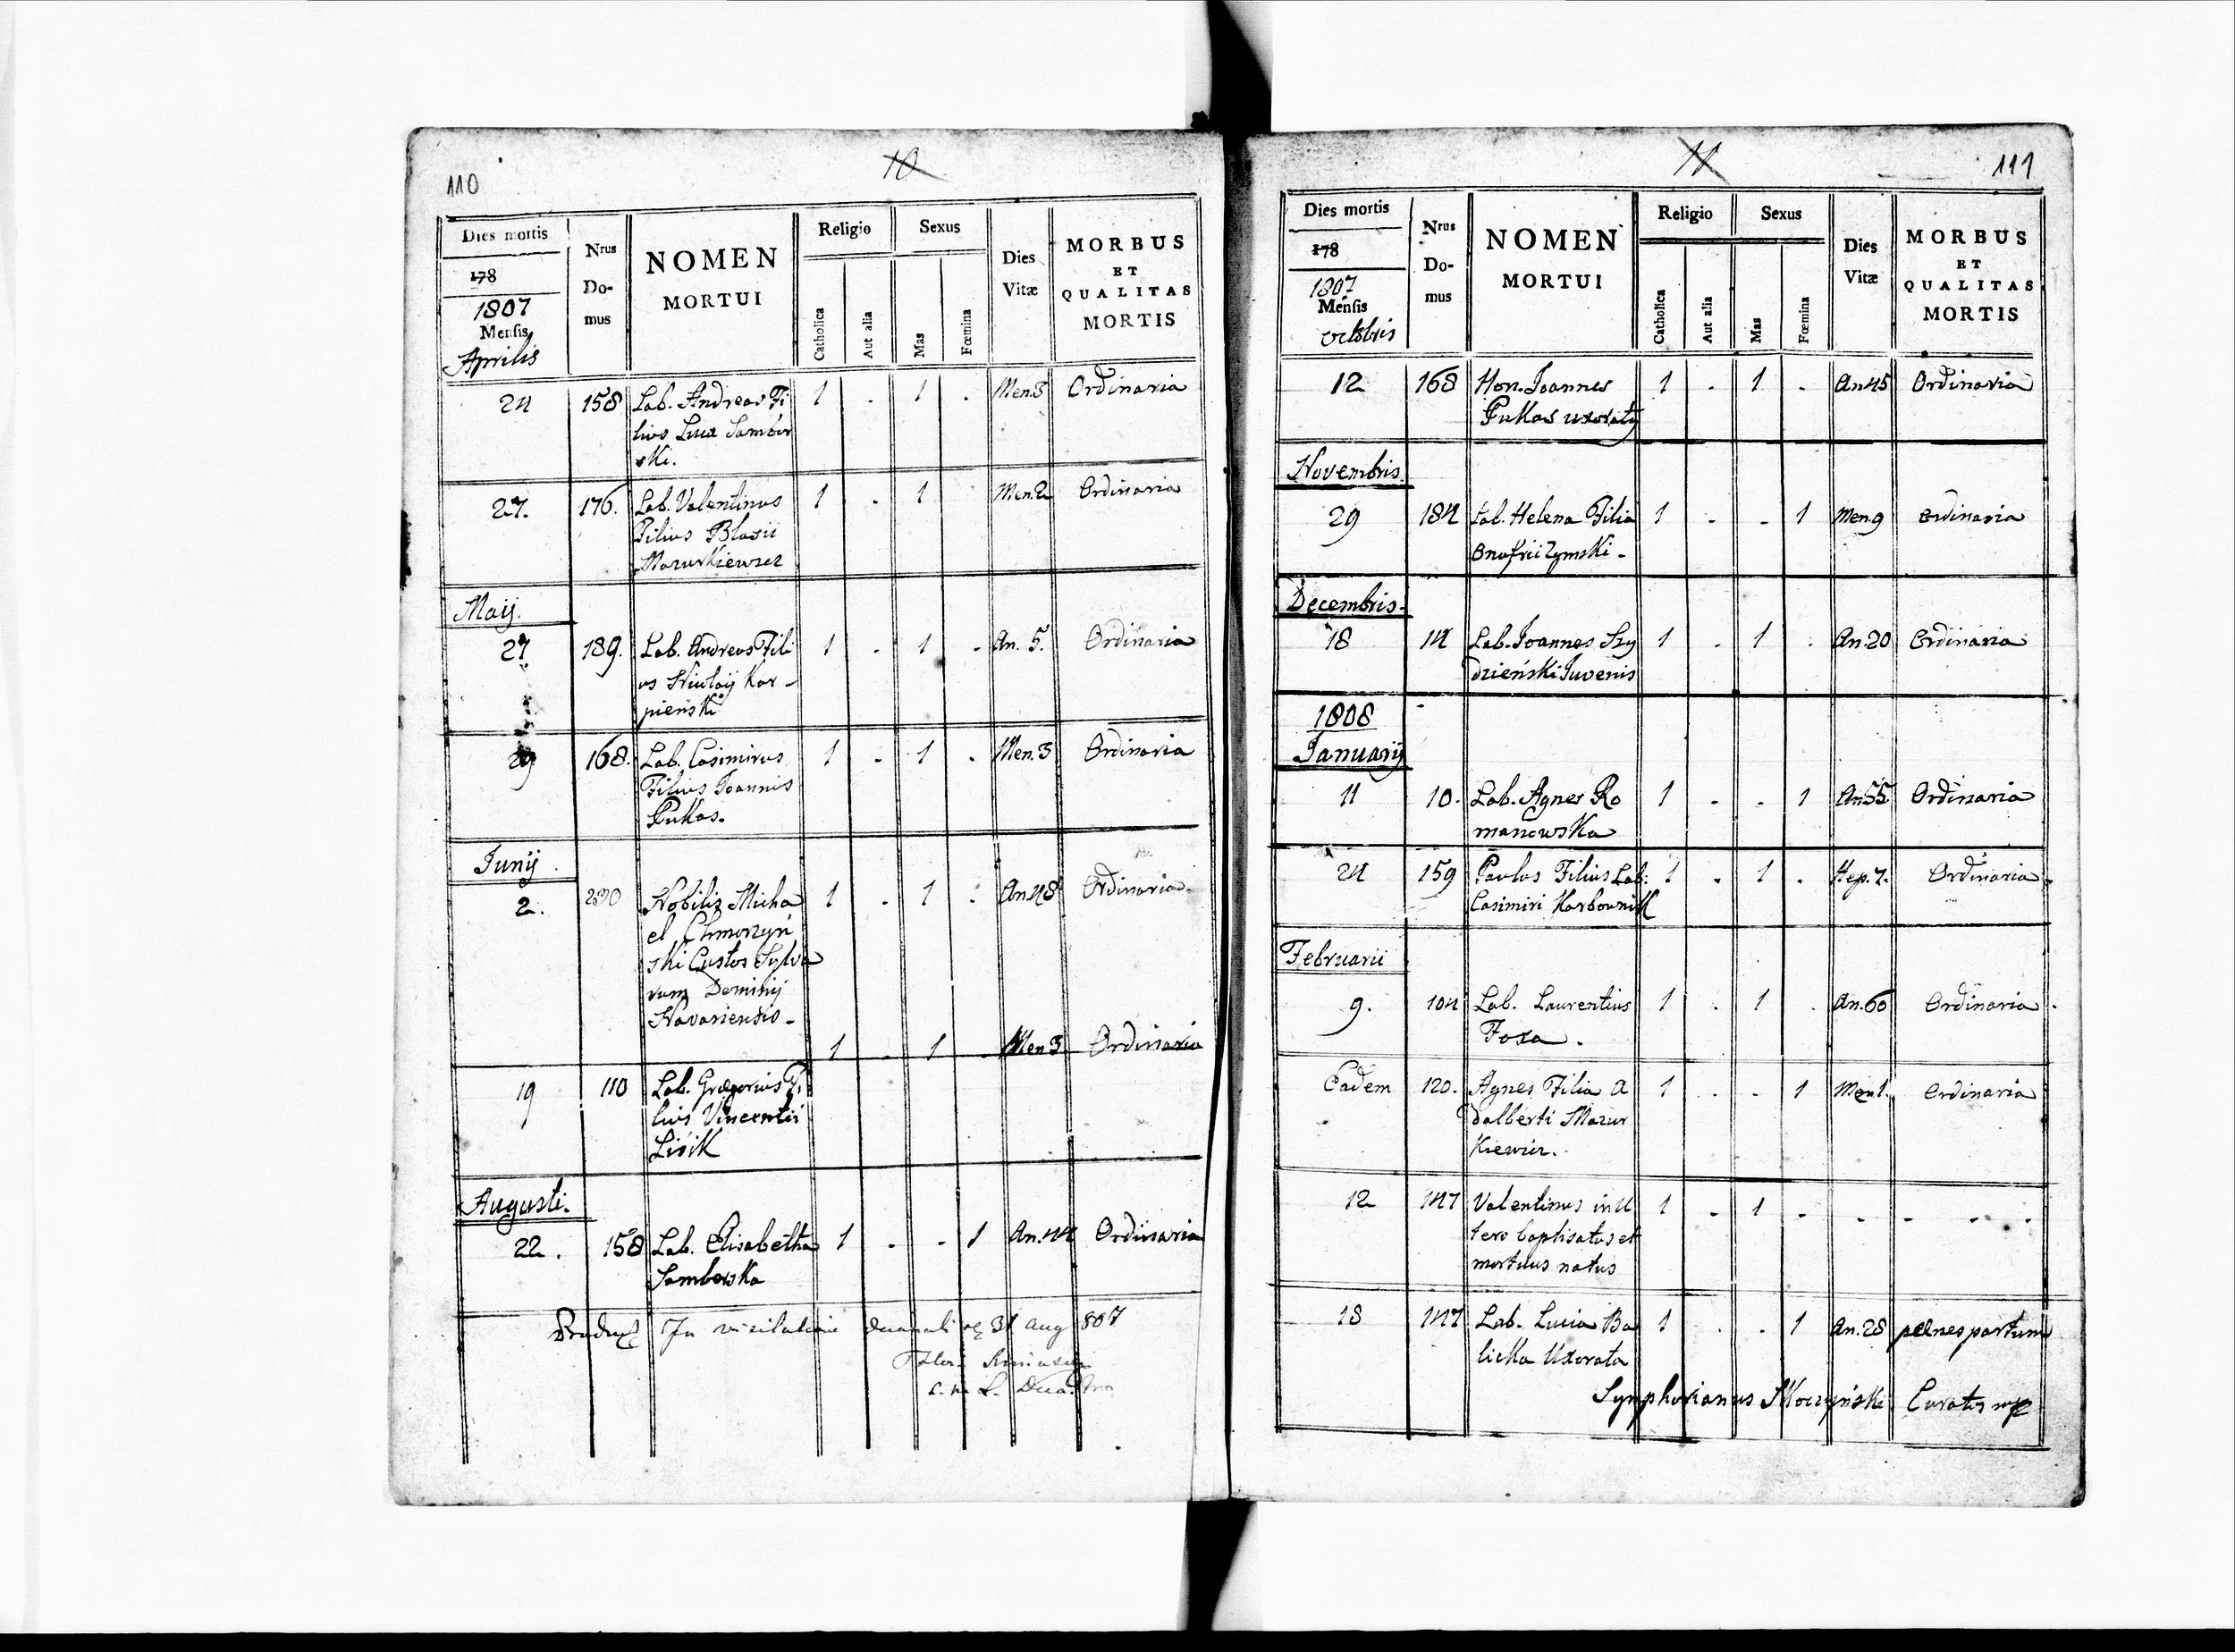 110
10
Dies mortis
178
1807
Mensis
Aprilis
Nrus
Do-
mus
NOMEN
MORTUI
Religio
Catholica
Aut alia
Sexus
Mas
Fœmina
Dies
Vitæ
MORBUS
ET
QUALITAS
MORTIS
24 158 Lab. Andreas Fi 1 . 1 . Men.3 Ordinaria
lius Luca Sambor
ski.
27. 176. Lab. Valentinus 1 . 1 Men.2 Ordinaria
Filius Blasii
Mazurkiewicz
Maij.
27 189. Lab. Andreas Fili 1 . 1 . An. 5. Ordinaria
us Nicolaij Kar-
pieński
29 168. Lab. Casimirus 1 . 1 . Men.3 Ordinaria
Filius Joannis
Pukas.
Junij
2. Nobilis Micha 1 . 1 . An.48 Ordinaria
el
ski Custos Sylva
rum Dominij
Navariensis-
1 . 1 . Men 3 Ordinaria
19 110 Lab. Gregorius Fi
lius Vincentii
Lisik
Augusti.
22. 158 Lab. Elisabetha 1 . . 1 An.44 Ordinaria
Samborska
In visitatione 31 aug 807
11
111
Dies mortis
178
1807
Mensis
octobris
Nrus
Do-
mus
NOMEN
MORTUI
Religio
Catholica
Aut alia
Sexus
Mas
Fœmina
Dies
Vitæ
MORBUS
ET
QUALITAS
MORTIS
12 168 Hon. Joannes 1 . 1 . An 45 Ordinaria
Pukas uxoratq
Novembris.
29 184 Lab. Helena Filia 1 . . 1 Men.9 Ordinaria
Onufrii Zymski-
Decembris-
18 14 Lab. Joannes Szy 1 . 1 . An.20 Ordinaria
dzieński Juvenis
1808
Januarij
11 10. Lab. Agnes Ro 1 . . 1 An.55 Ordinaria
manowska
24 159 Paulus Filius Lab: 1 . 1 . Hep.7. Ordinaria
Casimiri Karbownik
Februarii
9. 104 Lab. Laurentius 1 . 1 . An.60 Ordinaria
Foxa.
Eadem 120. Agnes Filia A 1 . . 1 Men1. Ordinaria
dalberti Mazur
kiewicz.
12 147 Valentinus in U 1 . 1 . . . . .
tero baptisatus et
mortuus natus
18 147 Lab. Lucia Ba 1 . . 1 An.28 penes partum
licka Uxorata
Symphorianus Skoczyński Curatus mp